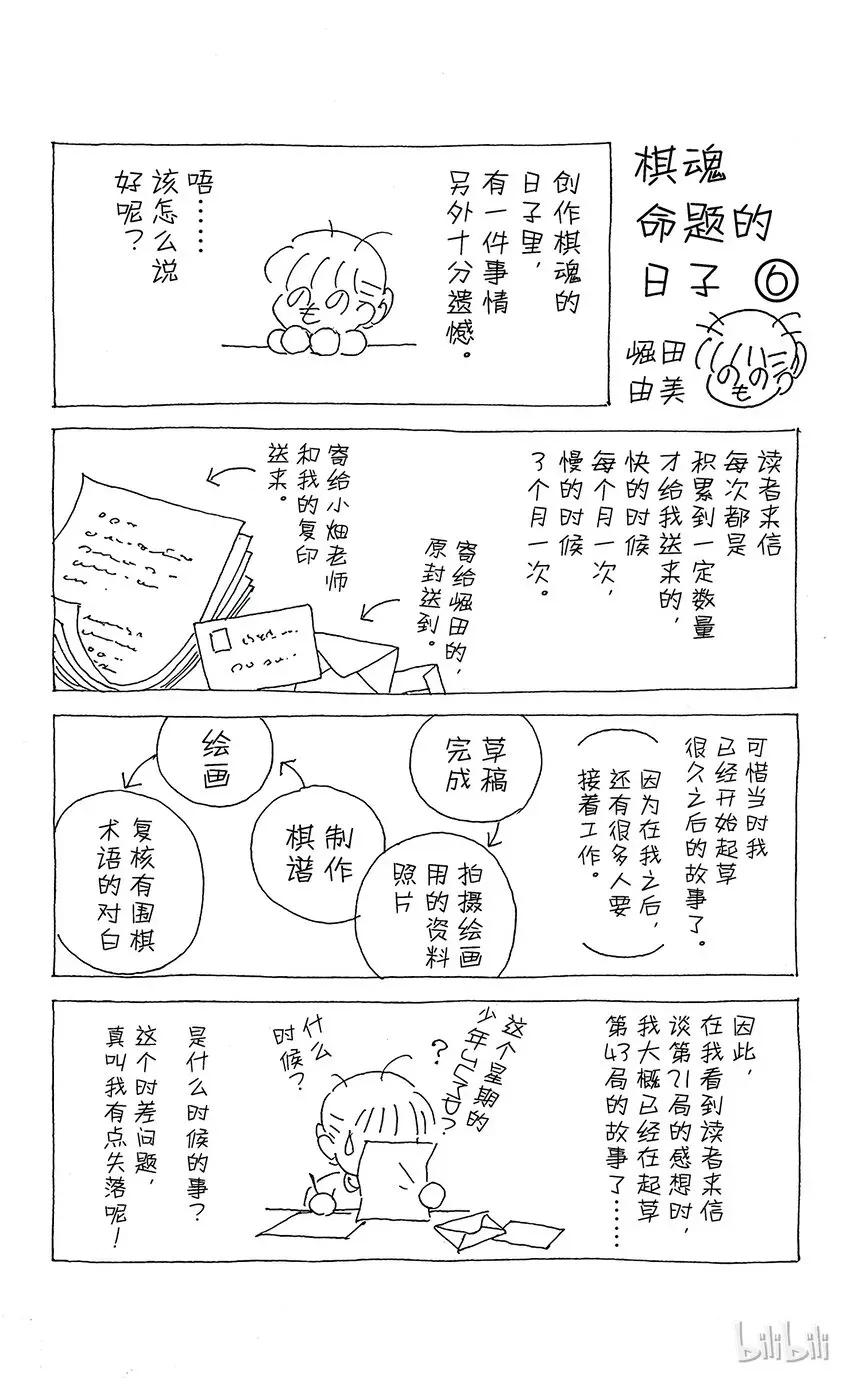 棋魂
命题的
日子 ⑥
堀田
由美
创作棋魂的
日子里，
有一件事情
另外十分遗憾。
唔……
该怎么说
好呢？
读者来信
每次都是
积累到一定数量
才给我送来的，
快的时候
每个月一次，
慢的时候
3个月一次。
寄给小畑老师
和我的复印
送来。
寄给堀田的，
原封送到。
可惜当时我
已经开始起草
很久之后的故事了。
因为在我之后，
还有很多人要
接着工作。
草稿
完成
拍摄绘画
用的资料
照片
制作
棋谱
绘画
复核有围棋
术语的对白
因此，
在我看到读者来信
谈第21局的感想时，
我大概已经在起草
第43局的故事了……
这个星期的
少年JUMP？
？
什么
时候？
是什么时候的事？
这个时差问题，
真叫我有点失落呢！
bilibili